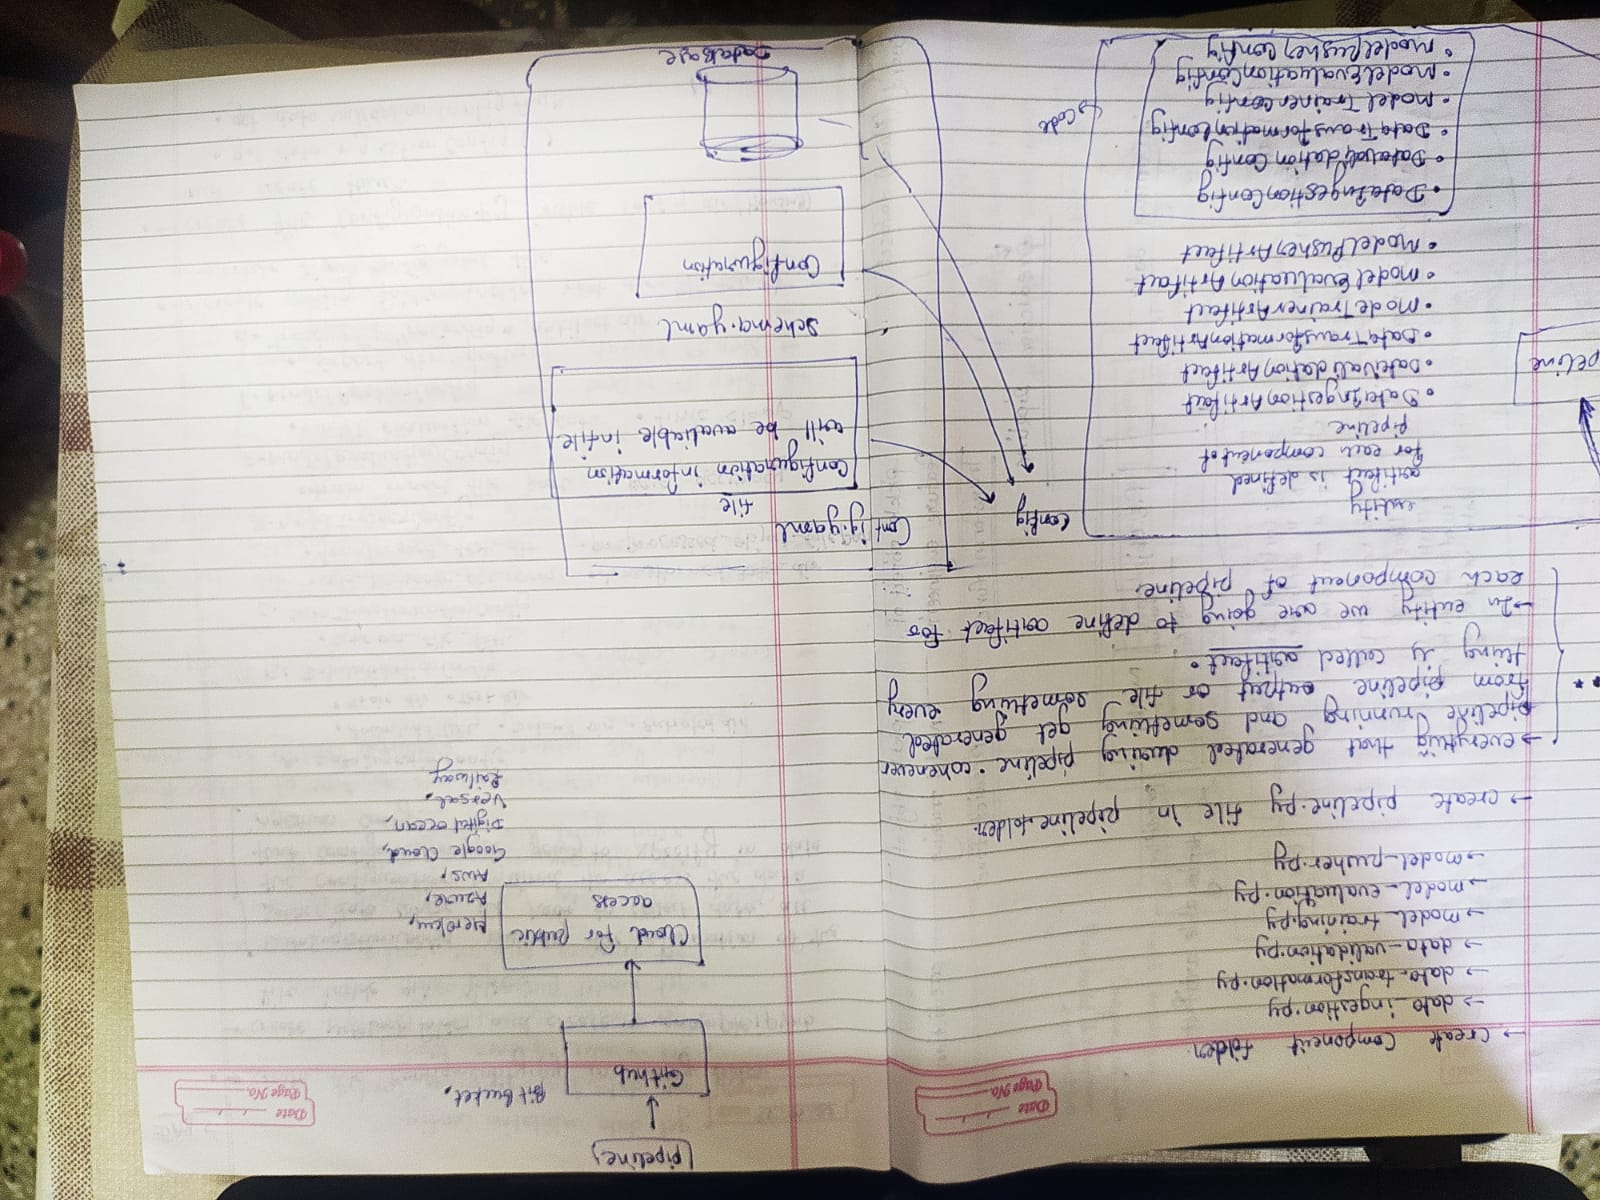 Date
Page No.
→ create component folder.
→ data_ingestion.py
→ data_transformation.py
→ data_validation.py
→ model_training.py
→ model_evaluation.py
→ model_pusher.py
→ create pipeline.py file in pipeline folder.
→ everything that generated during pipeline. whenever
pipeline running and something get generated
from pipeline output or file something every
thing is called artifact.
→ In entity we are going to define artifact for
each component of pipeline.
entity
artifact is defined
for each component of
pipeline
• DataIngestionArtifact
• DataValidationArtifact
• DataTransformationArtifact
• ModeTrainerArtifact
• ModelEvaluationArtifact
• ModelPusherArtifact
• DataIngestionConfig
• DataValidation Config
• DataTransformationConfig
• Model Trainer Config
• ModelEvaluationConfig
• ModelPusher Config
→ Code
peline
Config
(pipeline)
Date
Page No.
Github
Bit Bucket,
Cloud for public
access
Heroku,
Azure,
AWS,
Google Cloud,
Digital ocean,
Versal,
Railway
Config.yaml
file
Configuration information
will be avaliable in file
Schema.yaml
Configuration
DataBase